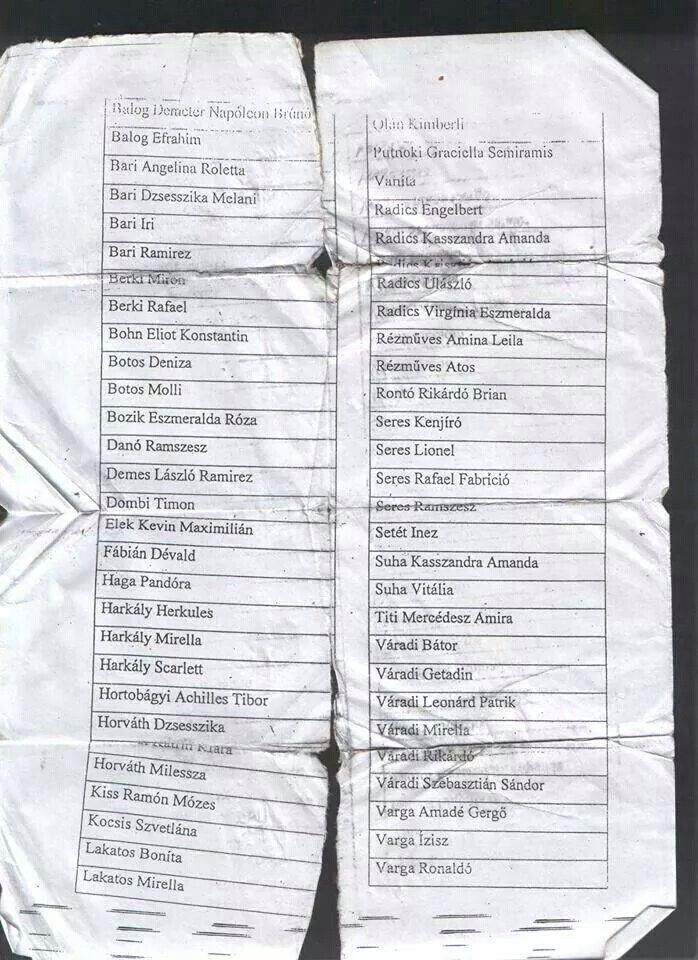 Balog Demeter Napóleon Brúnó
Balog Efrahim
Bari Angelina Roletta
Bari Dzsesszika Melani
Bari Iri
Bari Ramirez
Berki Miron
Berki Rafael
Bohn Eliot Konstantin
Botos Deniza
Botos Molli
Bozik Eszmeralda Róza
Danó Ramszesz
Demes László Ramirez
Dombi Timon
Elek Kevin Maximilián
Fábián Dévald
Haga Pandóra
Harkály Herkules
Harkály Mirella
Harkály Scarlett
Hortobágyi Achilles Tibor
Horváth Dzsesszika
Klára
Horváth Milessza
Kiss Ramón Mózes
Kocsis Szvetlána
Lakatos Boníta
Lakatos Mirella
Oláh Kimberli
Putnoki Graciella Semiramis
Vanita
Radics Engelbert
Radics Kasszandra Amanda
Radics Ulászló
Radics Virgínia Eszmeralda
Rézműves Amina Leila
Rézműves Atos
Rontó Rikárdó Brian
Seres Kenjíró
Seres Lionel
Seres Rafael Fabríció
Seres Ramszesz
Setét Inez
Suha Kasszandra Amanda
Suha Vitália
Titi Mercédesz Amira
Váradi Bátor
Váradi Getadin
Váradi Leonárd Patrik
Váradi Mirella
Váradi Rikárdó
Váradi Szebasztián Sándor
Varga Amadé Gergő
Varga Ízisz
Varga Ronaldó